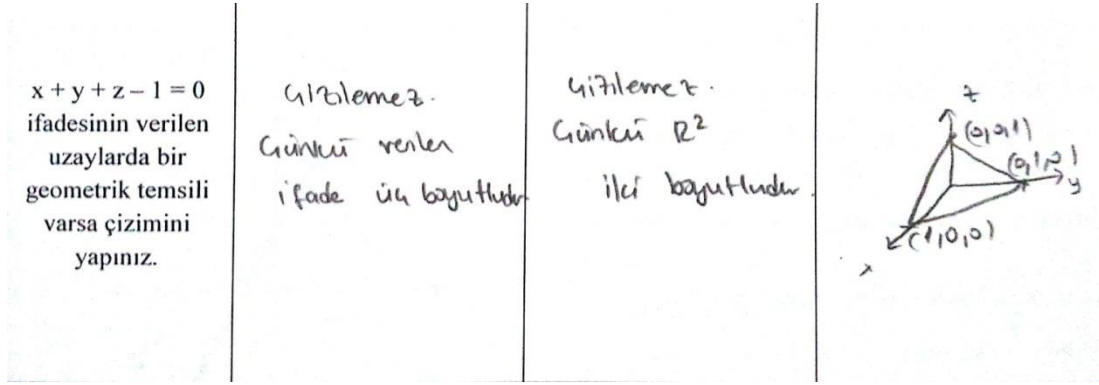 x + y + z – 1 = 0
ifadesinin verilen
uzaylarda bir
geometrik temsili
varsa çizimini
yapınız.
Çizilemez.
Çünkü verilen
ifade üç boyutludur
Çizilemez.
Çünkü R²
iki boyutludur.
z
(0,0,1)
(0,1,0)
y
(1,0,0)
x